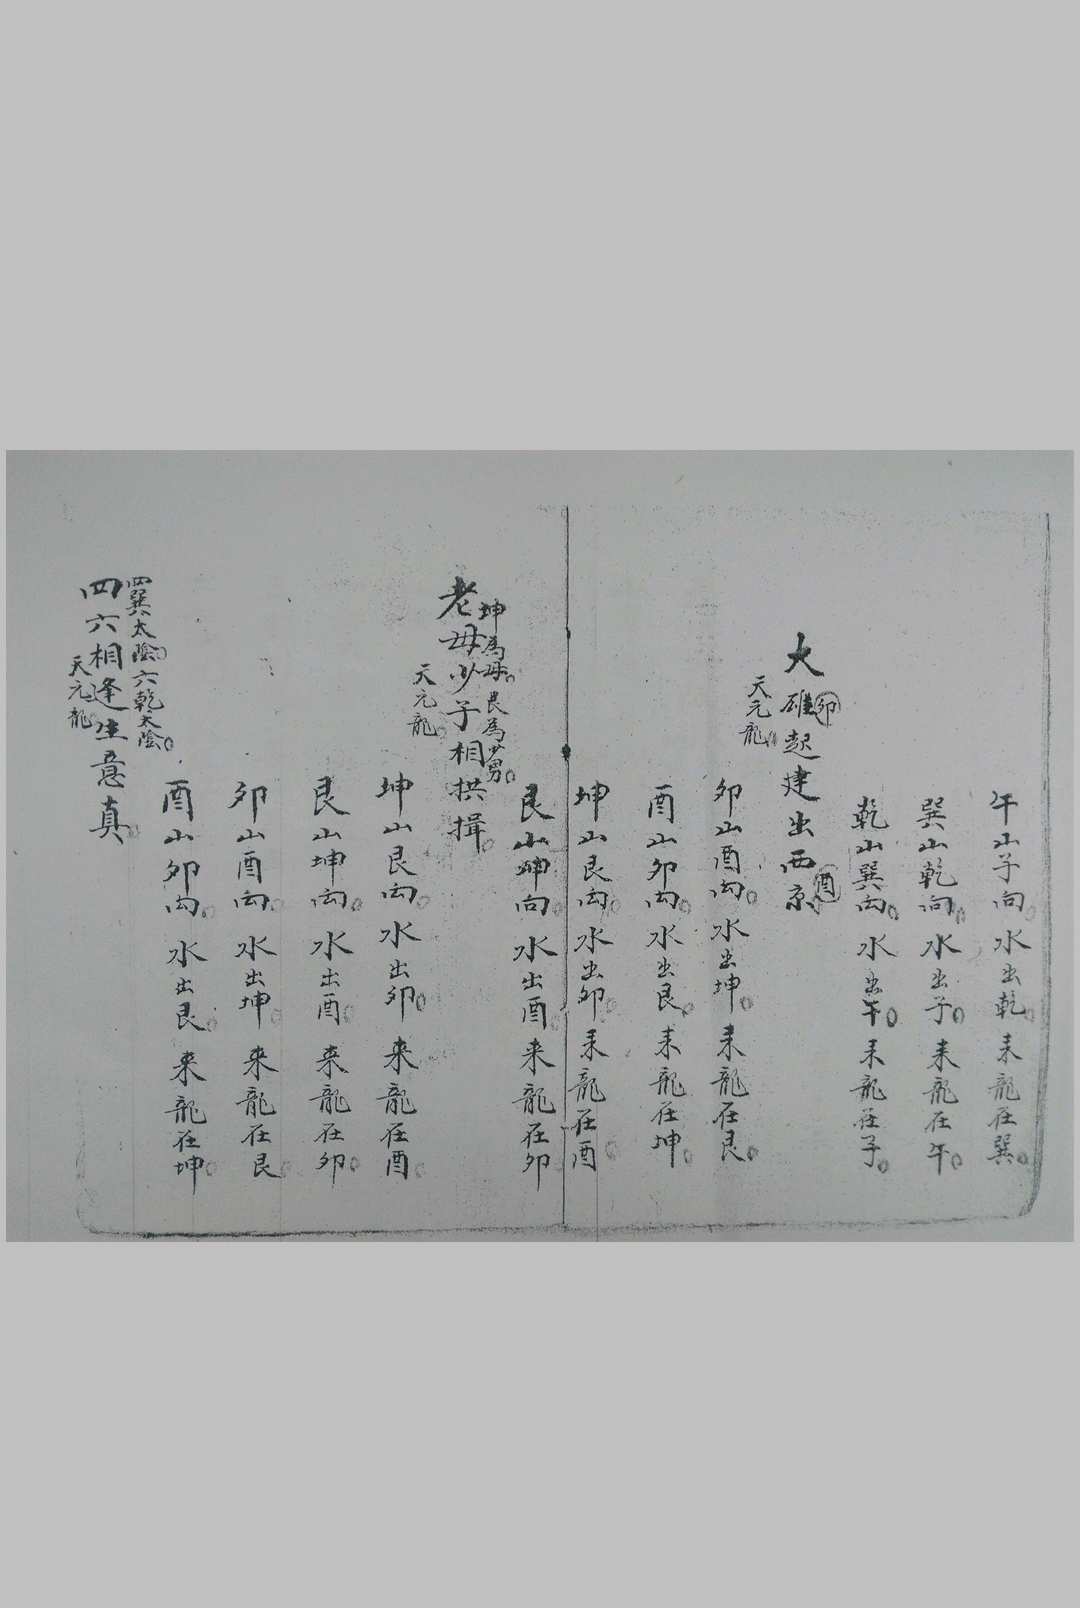 午山子向。水出乾。来龍在巽。
巽山乾向。水出子。来龍在午。
乾山巽向。水出午。来龍在子。
大雄起建出西京
卯
酉
天元龍。
卯山酉向。水出坤。来龍在艮。
酉山卯向。水出艮。来龍在坤。
坤山艮向。水出卯。来龍在酉
艮山坤向。水出酉。来龍在卯
坤為母。艮為少男。
老母少子相拱揖。
天元龍。
坤山艮向。水出卯。来龍在酉。
艮山坤向。水出酉。来龍在卯。
卯山酉向。水出坤。来龍在艮。
酉山卯向。水出艮。来龍在坤。
四巽太陰。六乾太陰。
四六相逢生意真。
天元龍。